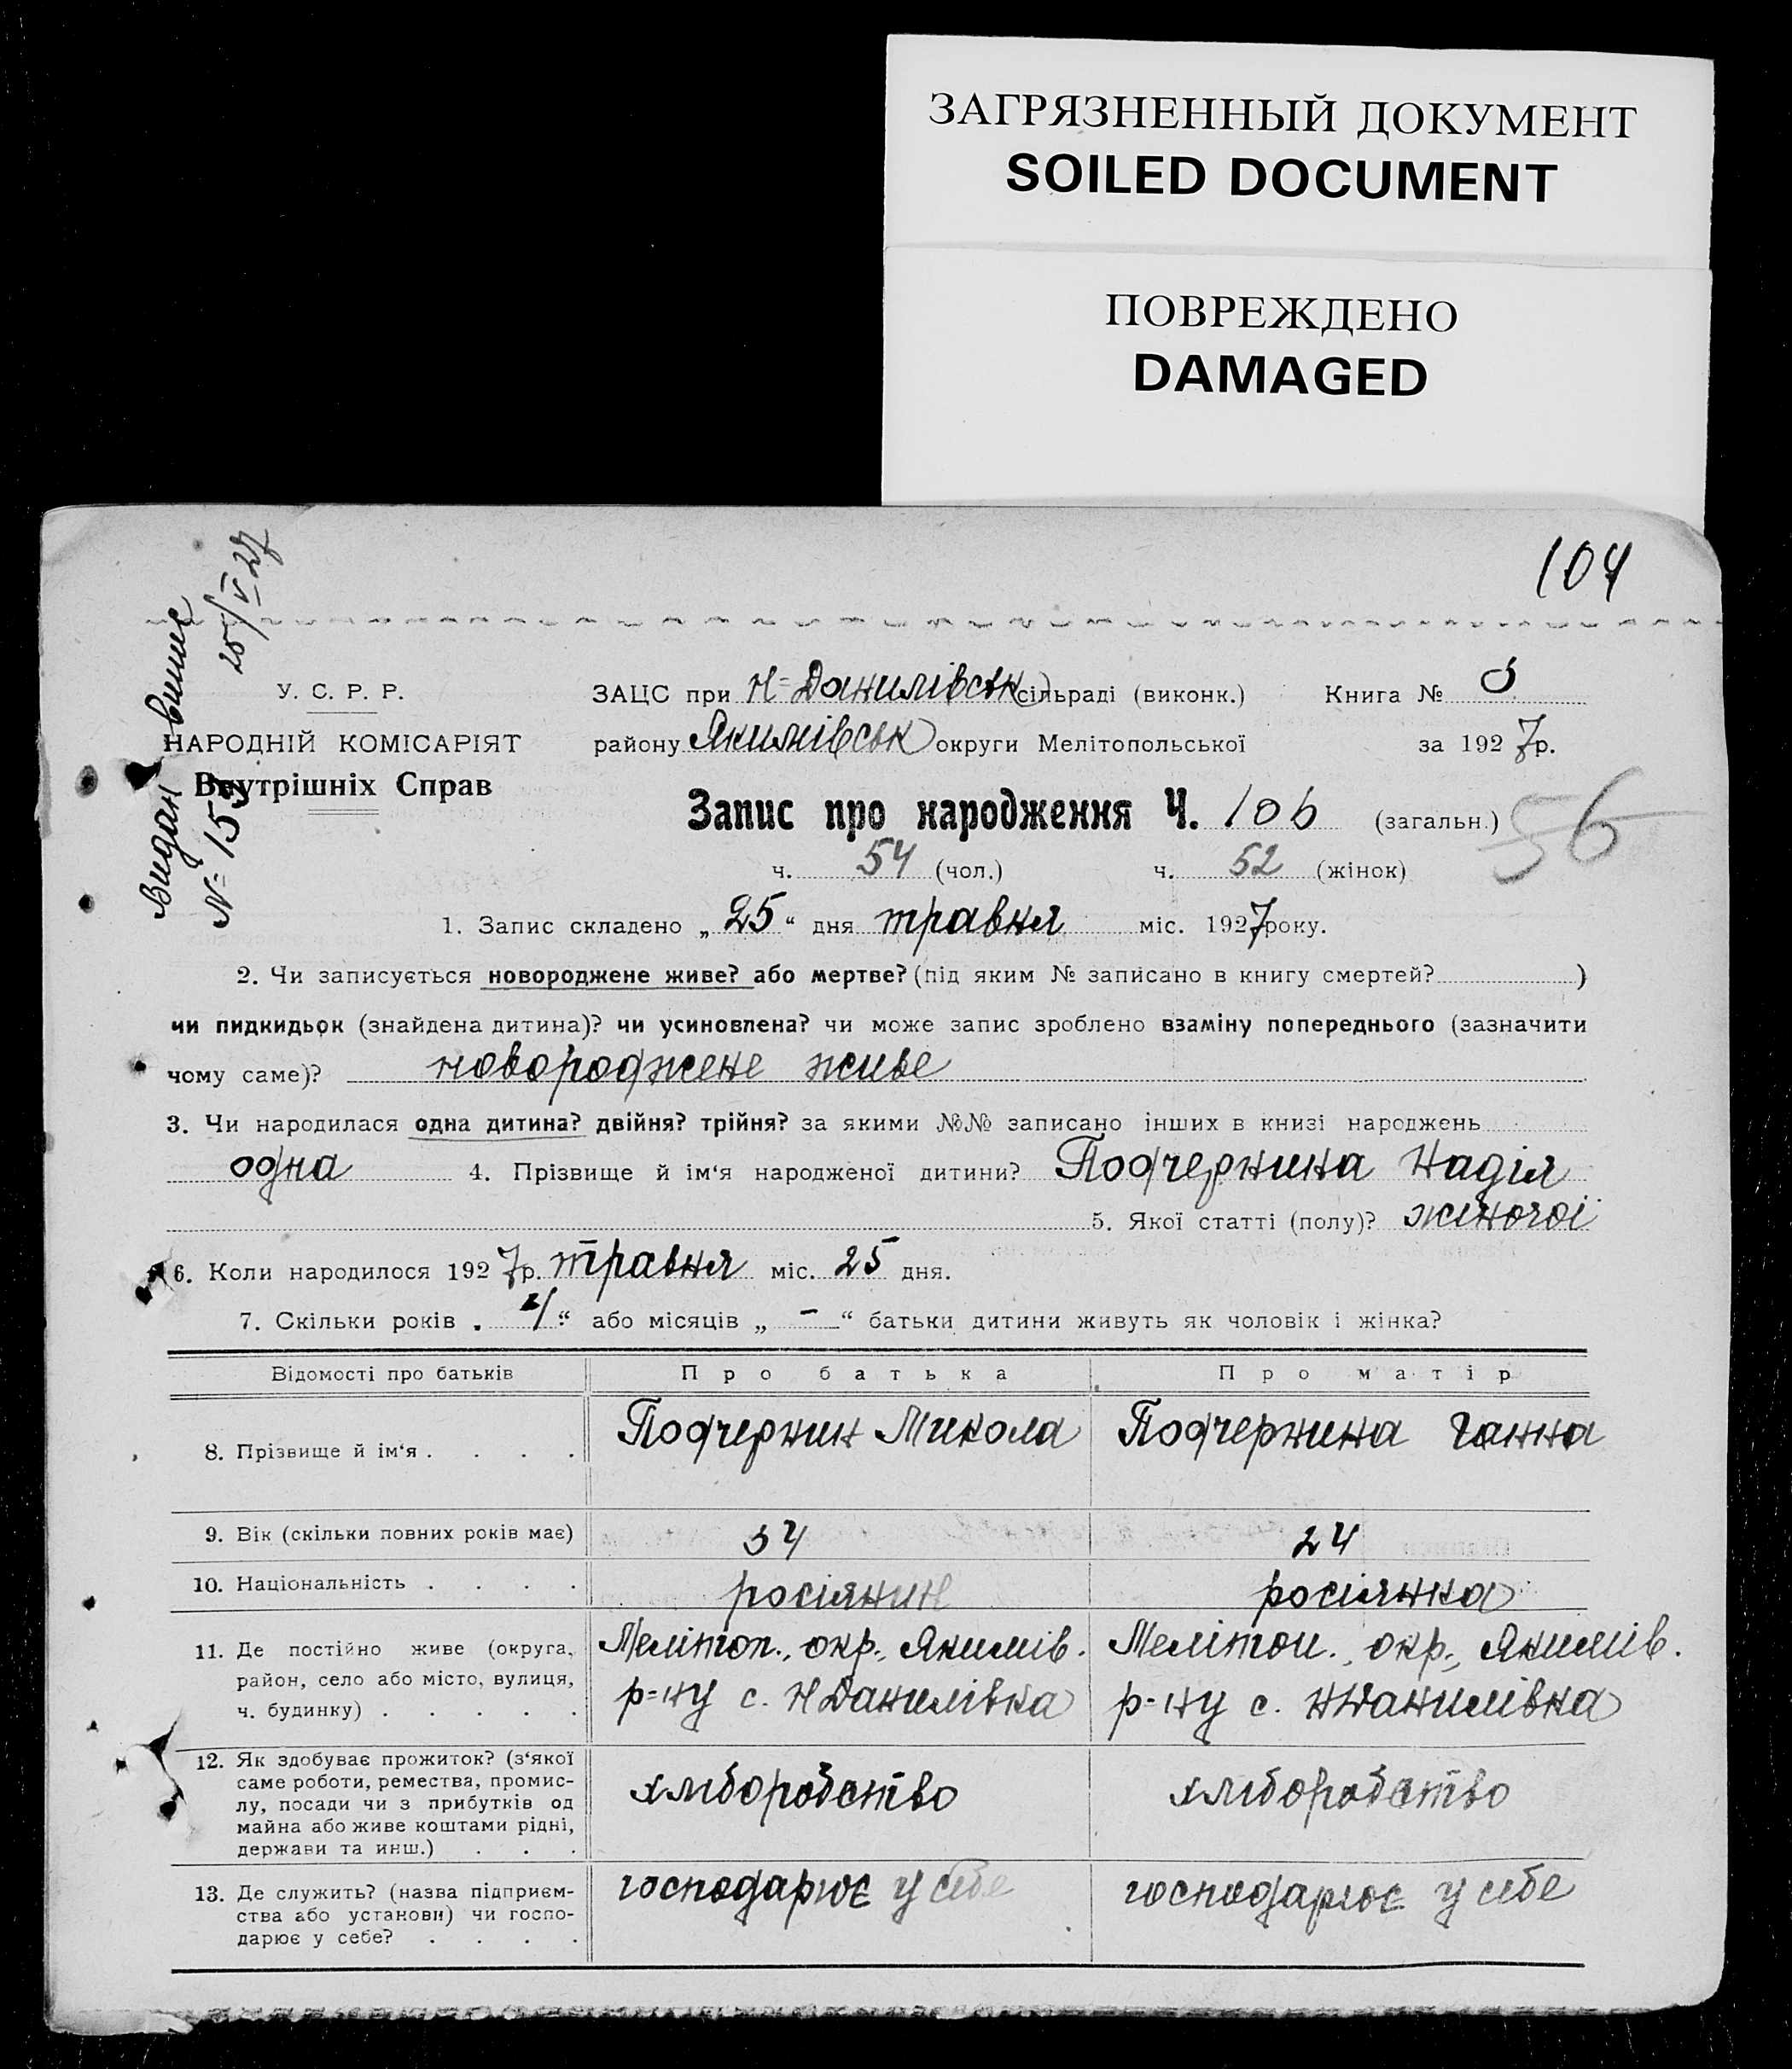 ЗАГРЯЗНЕННЫЙ ДОКУМЕНТ
SOILED DOCUMENT
ПОВРЕЖДЕНО
DAMAGED
104
Видан випис
№ 153 25/V 27
У. С. Р. Р.
НАРОДНІЙ КОМІСАРІЯТ
Внутрішніх Справ
ЗАЦС при Н-Данилівськ сільраді (виконк.) Книга №
району Якимівськ округи Мелітопольської за 1927р.
Запис про народження Ч. 106 (загальн.) 56
ч. 54 (чол.) ч. 52 (жінок)
1. Запис складено „25“ дня травня міс. 1927року.
2. Чи записується новороджене живе? або мертве? (під яким № записано в книгу смертей? )
чи пидкидьок (знайдена дитина)? чи усиновлена? чи може запис зроблено взаміну попереднього (зазначити
чому саме)? новороджене живе
3. Чи народилася одна дитина? двійня? трійня? за якими №№ записано інших в книзі народжень
одна 4. Прізвище й ім'я народженої дитини? Подчернина Надія
5. Якої статті (полу)? жіночої
6. Коли народилося 1927р. травня міс. 25 дня.
7. Скільки років „ “ або місяців „ – “ батьки дитини живуть як чоловік і жінка?
Відомості про батьків Про батька Про матір
8. Прізвище й ім'я . . . . Подчернин Микола Подчернина Ганна
9. Вік (скільки повних років має) 34 24
10. Національність . . . . росіянин росіянка
11. Де постійно живе (округа, район, село або місто, вулиця, ч. будинку) . . . . .
Мелітоп., окр., Якимів.
р-ну с. НДанилівка
Мелітоп., окр., Якимів.
р-ну с. НДанилівка
12. Як здобуває прожиток? (з'якої
саме роботи, ремества, промис-
лу, посади чи з прибутків од
майна або живе коштами рідні,
держави та инш.) . . .
хліборобство хліборобство
13. Де служить? (назва підприєм-
ства або установи) чи госпо-
дарює у себе? . . . .
господарює у себе господарює у себе